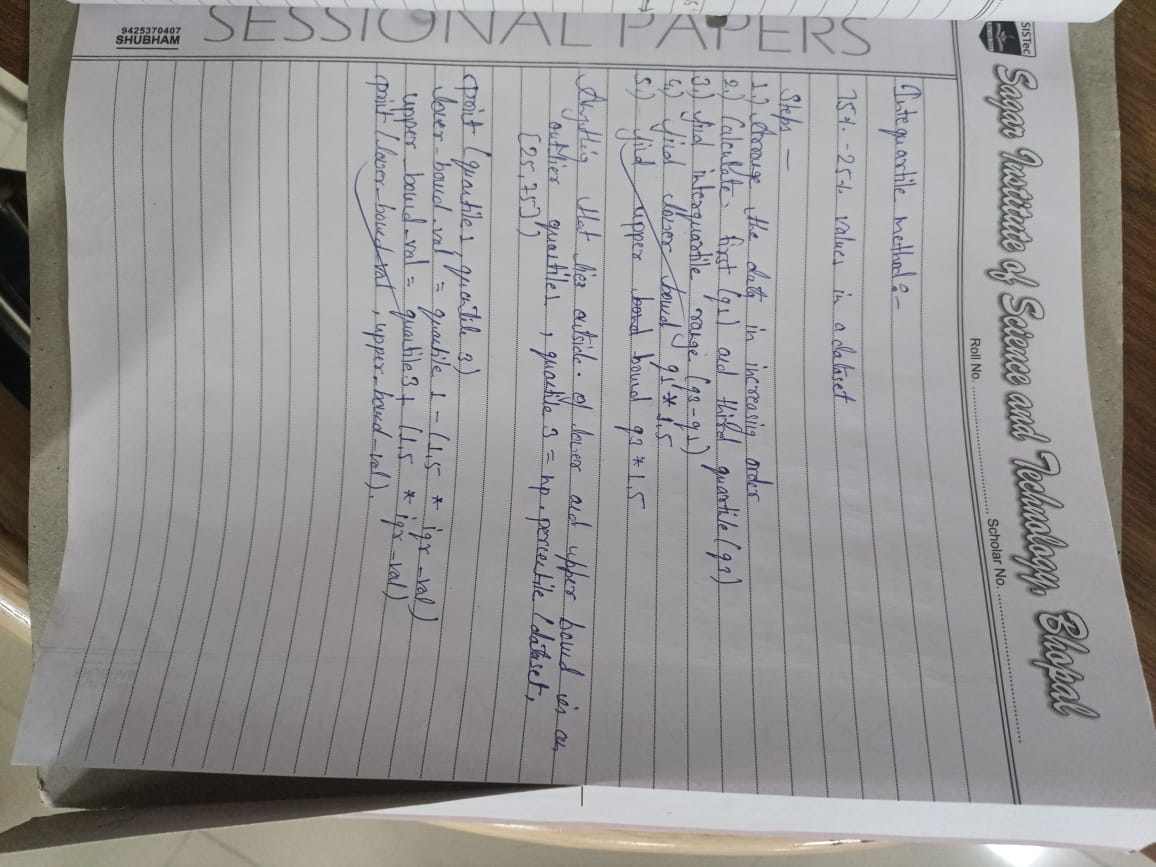 SISTec
Sagar Institute of Science and Technology, Bhopal
Roll No. .......... Scholar No. ..........
SESSIONAL PAPERS
9425370407
SHUBHAM
Intequartile method :-
75% - 25% values in a dataset
Steps —
1.) Arrange the data in increasing order
2.) Calculate first (q1) and third quartile (q3)
3.) find interquartile range (q3-q1)
4.) find lower bound q1 * 1.5
5.) find upper bound q3 * 1.5
Anything that lies outside of lower and upper bound is an
outlier quartile1, quartile 3 = np.percentile (dataset,
[25,75])
print (quartile 1, quartile 3)
lower-bound-val = quartile 1 - (1.5 * iqr-val)
upper-bound-val = quartile 3 + (1.5 * iqr-val)
print (lower-bound-val, upper-bound-val).